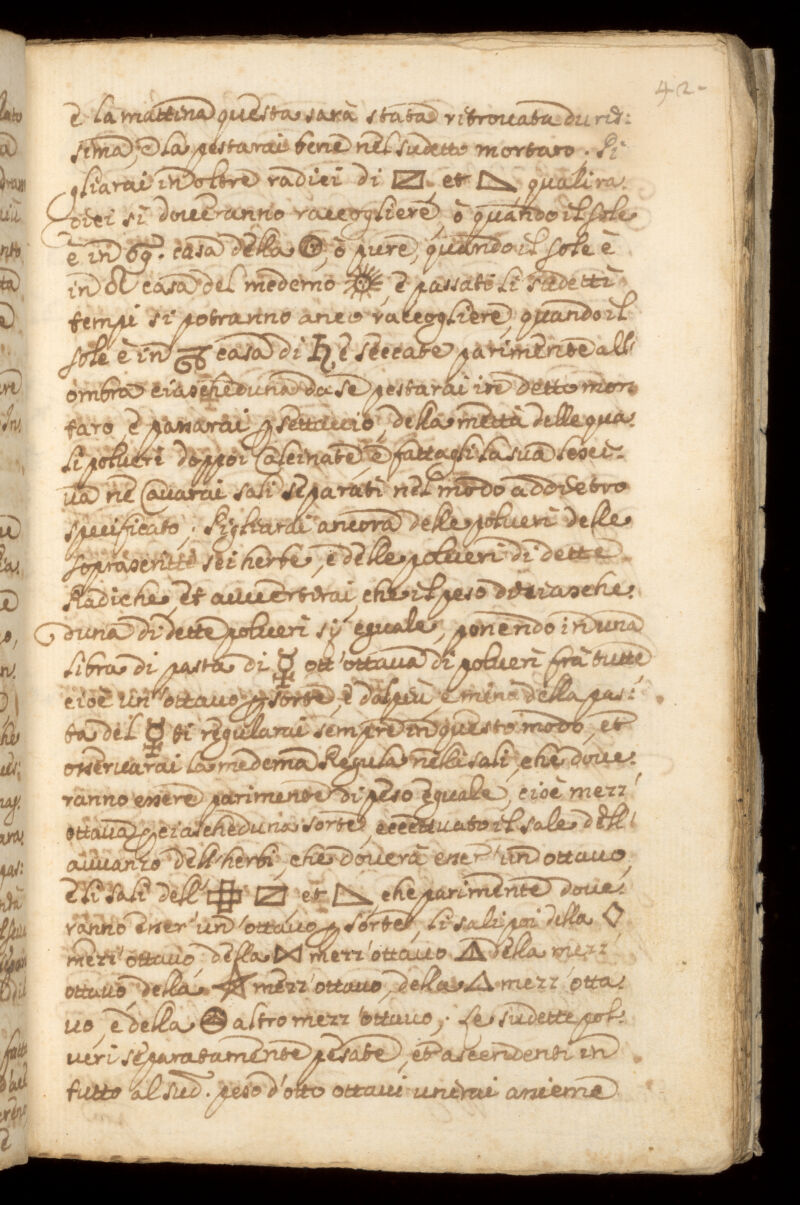 42-
è la mattina questa sarà stata ritrouata duris:
sima, e la pestarai bene nel sudetto mortaro. Pi
gliarai in oltre radici di et quali ra
dici si doueranno raccogliere, ò quando il sole
è in 69. casa della ò pure, quando il sole è
in ♌ casa del medemo ☀, è passati li sudetti
tempi si potranno anco raccogliere, quando il
sole è in ♑ casa di ♄, e seccate parimente all'
ombra ciascheduna da se pestarai in detto mor
taro è passarai p settaccio, della mettà delle qua:
li polueri doppoi calcinate, è fattagli la sua lesci:
ua ne cauarai sali separati nel modo addietro
specificato; Pigliarai ancora delle polueri delle
soprascritte sei herbe, è delle polueri di dette
Radiche, et auuertirai, che il peso di ciasche:
duna di dette polueri sij eguale, ponendo in una
libra di pasta di ☿ ott'ottaua di polueri frà tutte
cioè un'ottauo p sorte, è dal più è meno della pas:
ta del ☿ ti regularai sempre in questo modo, et
osseruarai la medema Regula nelli sali, che doue:
ranno essere parimente di peso eguale, cioè mezz'
ottaua p ciascheduna sorte, eccettuato il sale dell'
auuanzo dell'herbi, che douerà esser un ottauo,
è li sali dell' et che parimente doue:
ranno esser un'ottauo p sorte, li sali poi della ◇
mezz'ottauo, della ⋈ mezz'ottauo della mezz'
ottauo, della mezz'ottauo, della △ mezz'otta:
uo, è della altro mezz'ottauo; Le sudette pol:
ueri separatamente pesate, et ascendenti in
tutto al sud. peso d'otto ottaui unirai assieme